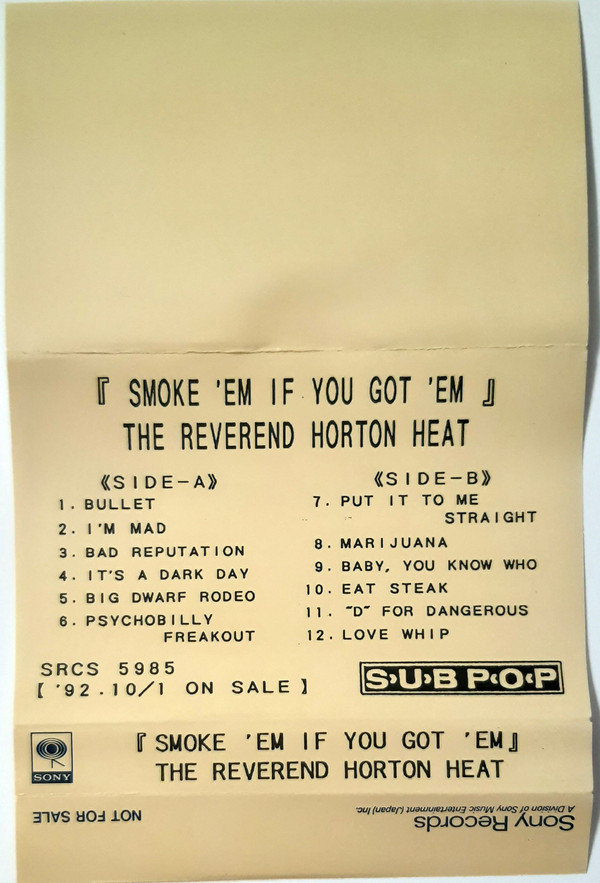 『 SMOKE 'EM IF YOU GOT 'EM 』
THE REVEREND HORTON HEAT
《SIDE-A》
1. BULLET
2. I'M MAD
3. BAD REPUTATION
4. IT'S A DARK DAY
5. BIG DWARF RODEO
6. PSYCHOBILLY
FREAKOUT
《SIDE-B》
7. PUT IT TO ME
STRAIGHT
8. MARIJUANA
9. BABY, YOU KNOW WHO
10. EAT STEAK
11. "D" FOR DANGEROUS
12. LOVE WHIP
SRCS 5985
【 '92.10/1 ON SALE 】
SUB POP
SONY
『 SMOKE 'EM IF YOU GOT 'EM』
THE REVEREND HORTON HEAT
Sony Records
A Division of Sony Music Entertainment (Japan) Inc.
NOT FOR SALE